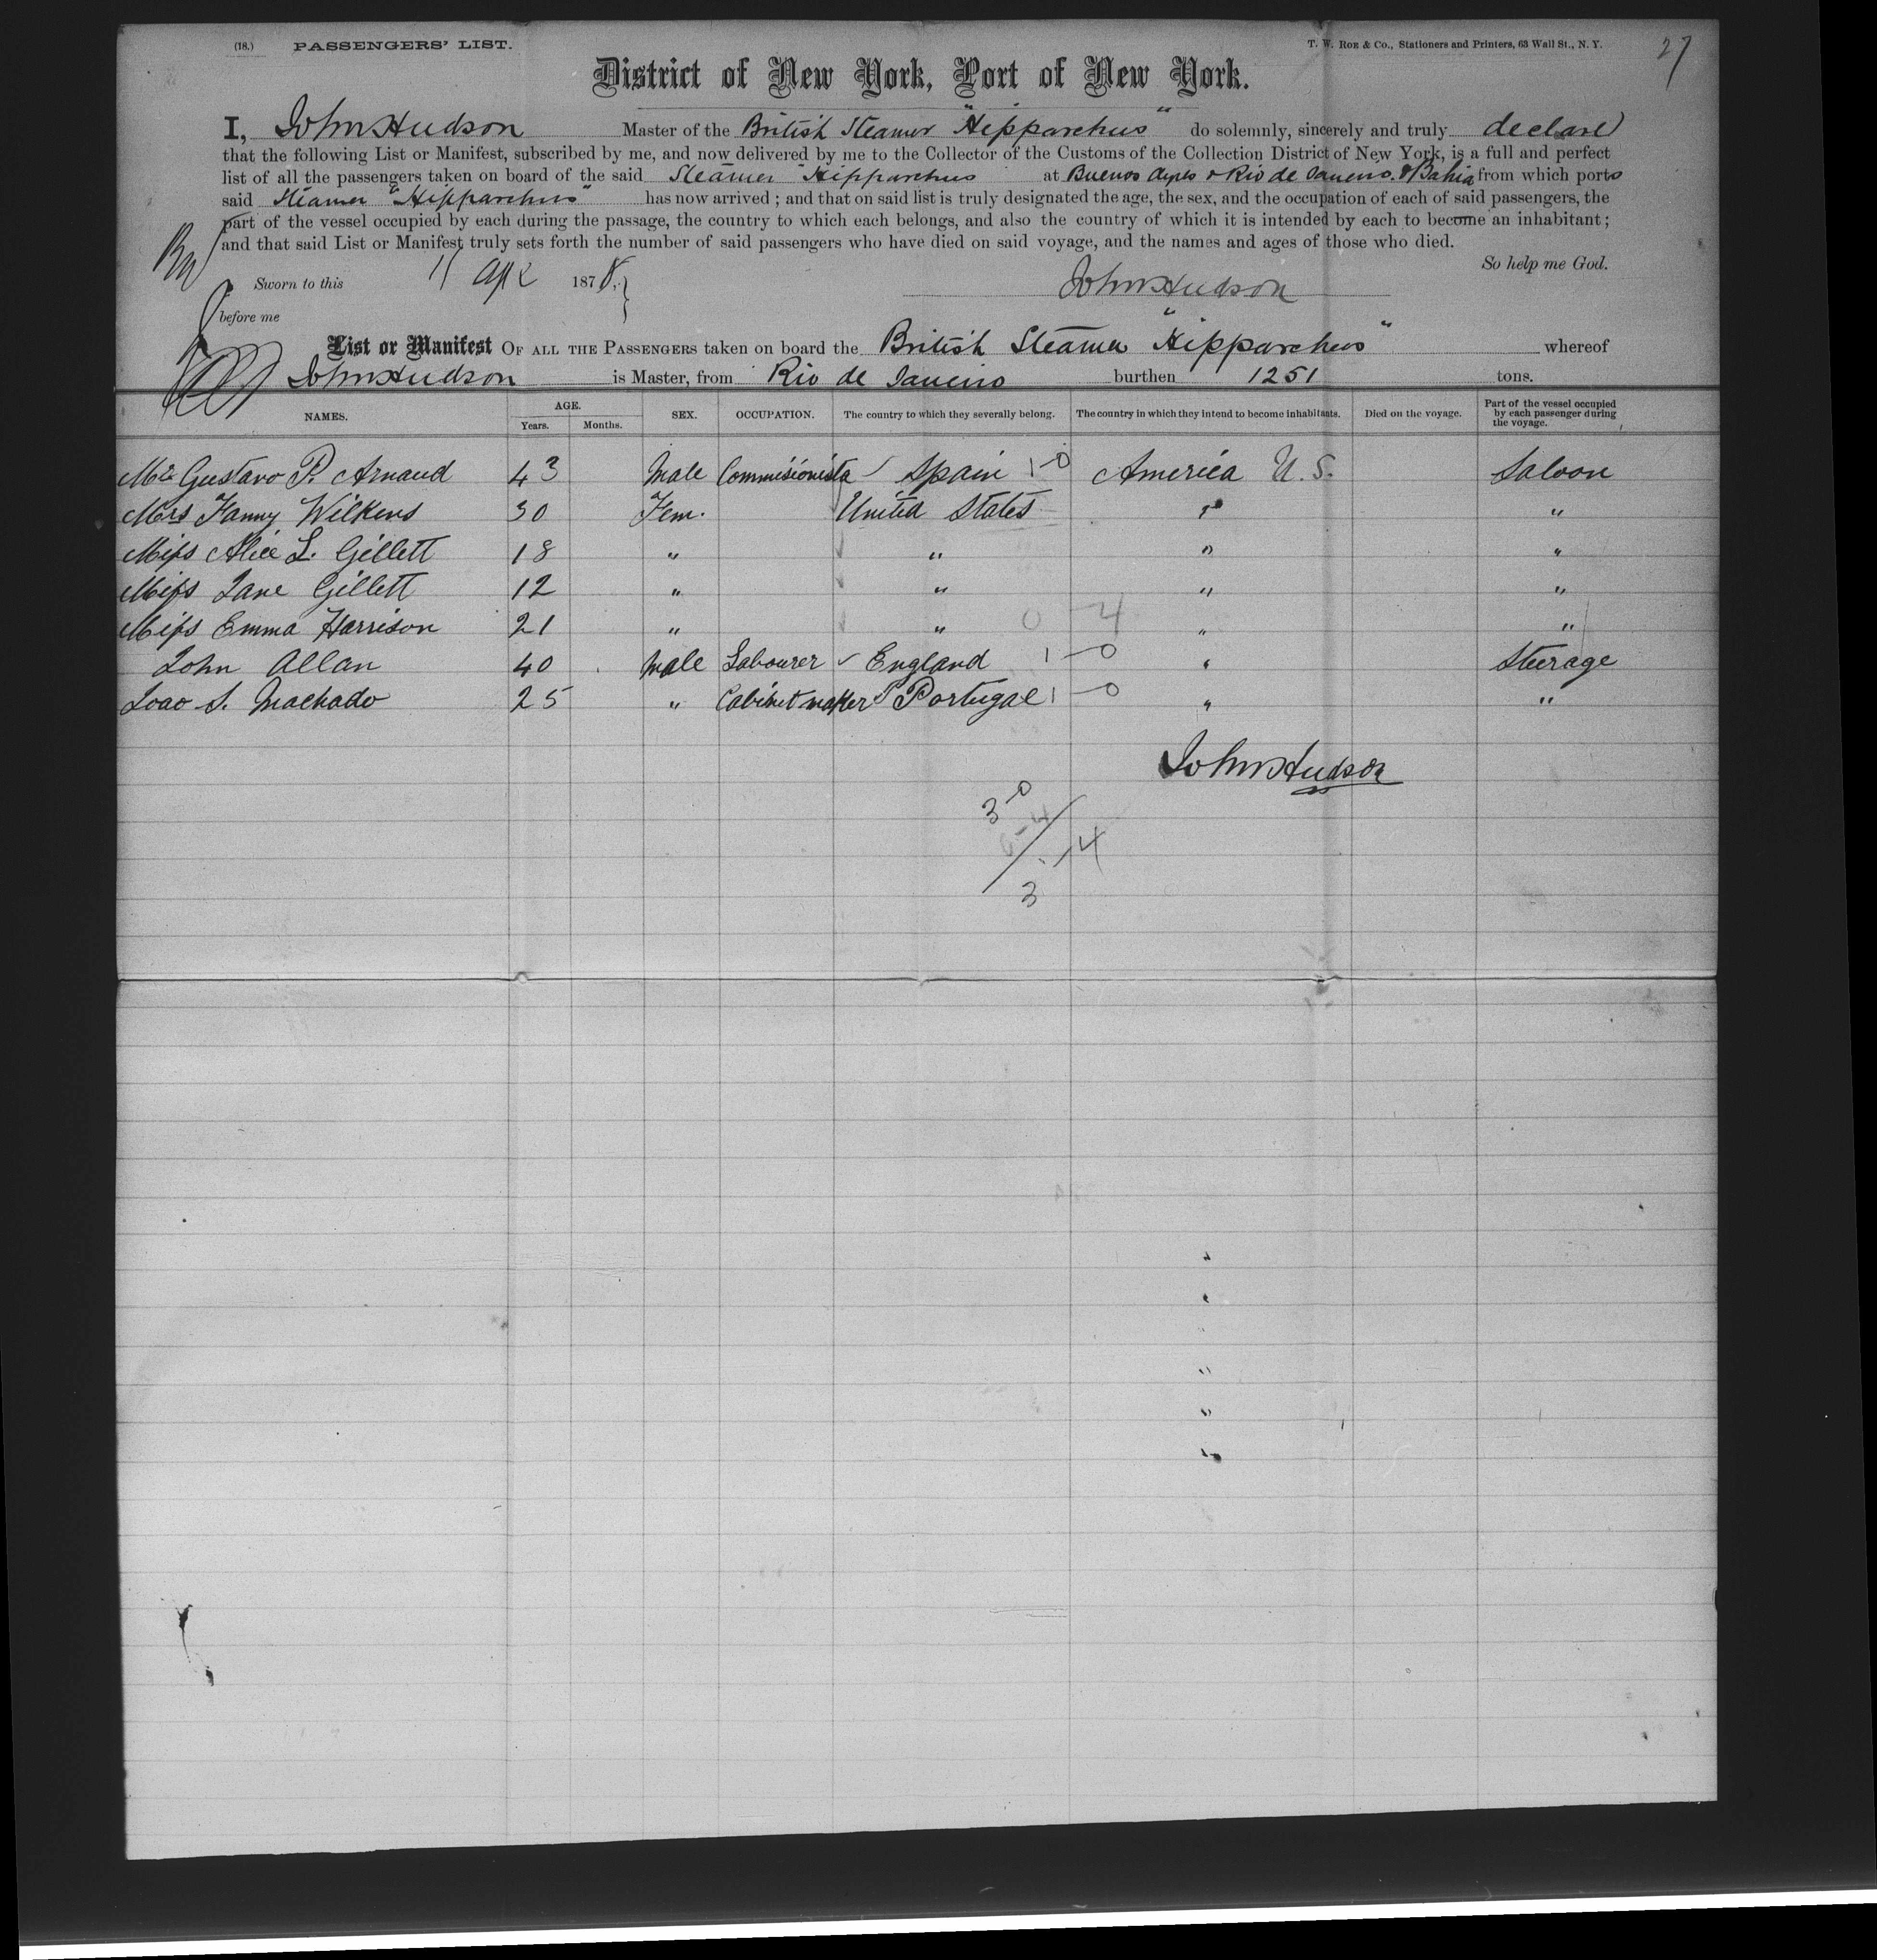 (18.) PASSENGERS' LIST. T. W. Roe & Co., Stationers and Printers, 63 Wall St., N. Y. 27
District of New York, Port of New York.
I, John Hudson Master of the British Steamer "Hipparchus" do solemnly, sincerely and truly declare
that the following List or Manifest, subscribed by me, and now delivered by me to the Collector of the Customs of the Collection District of New York, is a full and perfect
list of all the passengers taken on board of the said Steamer Hipparchus at Buenos Ayres & Rio de Janeiro & Bahia from which ports
said Steamer "Hipparchus" has now arrived ; and that on said list is truly designated the age, the sex, and the occupation of each of said passengers, the
part of the vessel occupied by each during the passage, the country to which each belongs, and also the country of which it is intended by each to become an inhabitant ;
and that said List or Manifest truly sets forth the number of said passengers who have died on said voyage, and the names and ages of those who died.
So help me God.
Sworn to this 11 Apl 1878. John Hudson
before me
List or Manifest OF ALL THE PASSENGERS taken on board the British Steamer "Hipparchus" whereof
John Hudson is Master, from Rio de Janeiro burthen 1251 tons.
NAMES. AGE. Years. Months. SEX. OCCUPATION. The country to which they severally belong. The country in which they intend to become inhabitants. Died on the voyage. Part of the vessel occupied by each passenger during the voyage.
Mr Gustavo P. Arnaud 43 Male Commisionista Spain 1-0 America U.S. Saloon
Mrs Fanny Wilkens 30 Fem. United States " "
Miss Alice L. Gillett 18 " " " "
Miss Jane Gillett 12 " " " "
Miss Emma Harrison 21 " " 0 - 4 " "
John Allan 40 Male Labourer England 1-0 " Steerage
Joao S. Machado 25 " Cabinet maker Portugal 1-0 " "
John Hudson
3-0
3-4